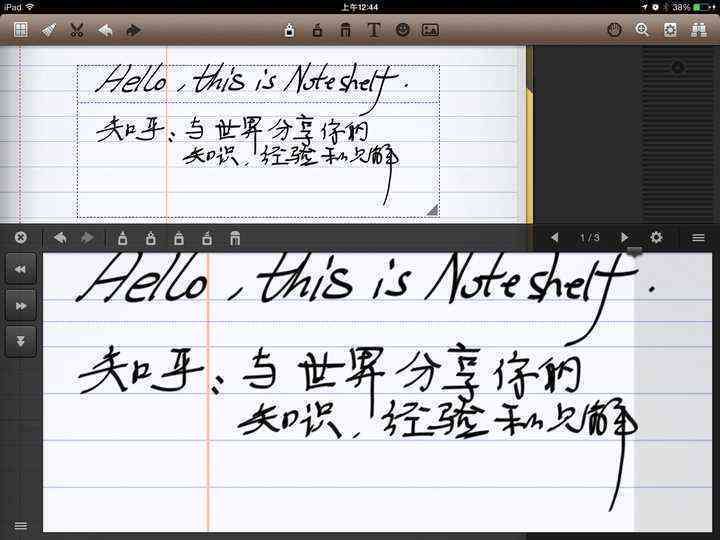 iPad 上午12:44 38%
T
Hello, this is Noteshelf.
知乎：与世界分享你的
知识，经验和见解
1/3
Hello, this is Noteshelf.
知乎：与世界分享你的
知识，经验和见解